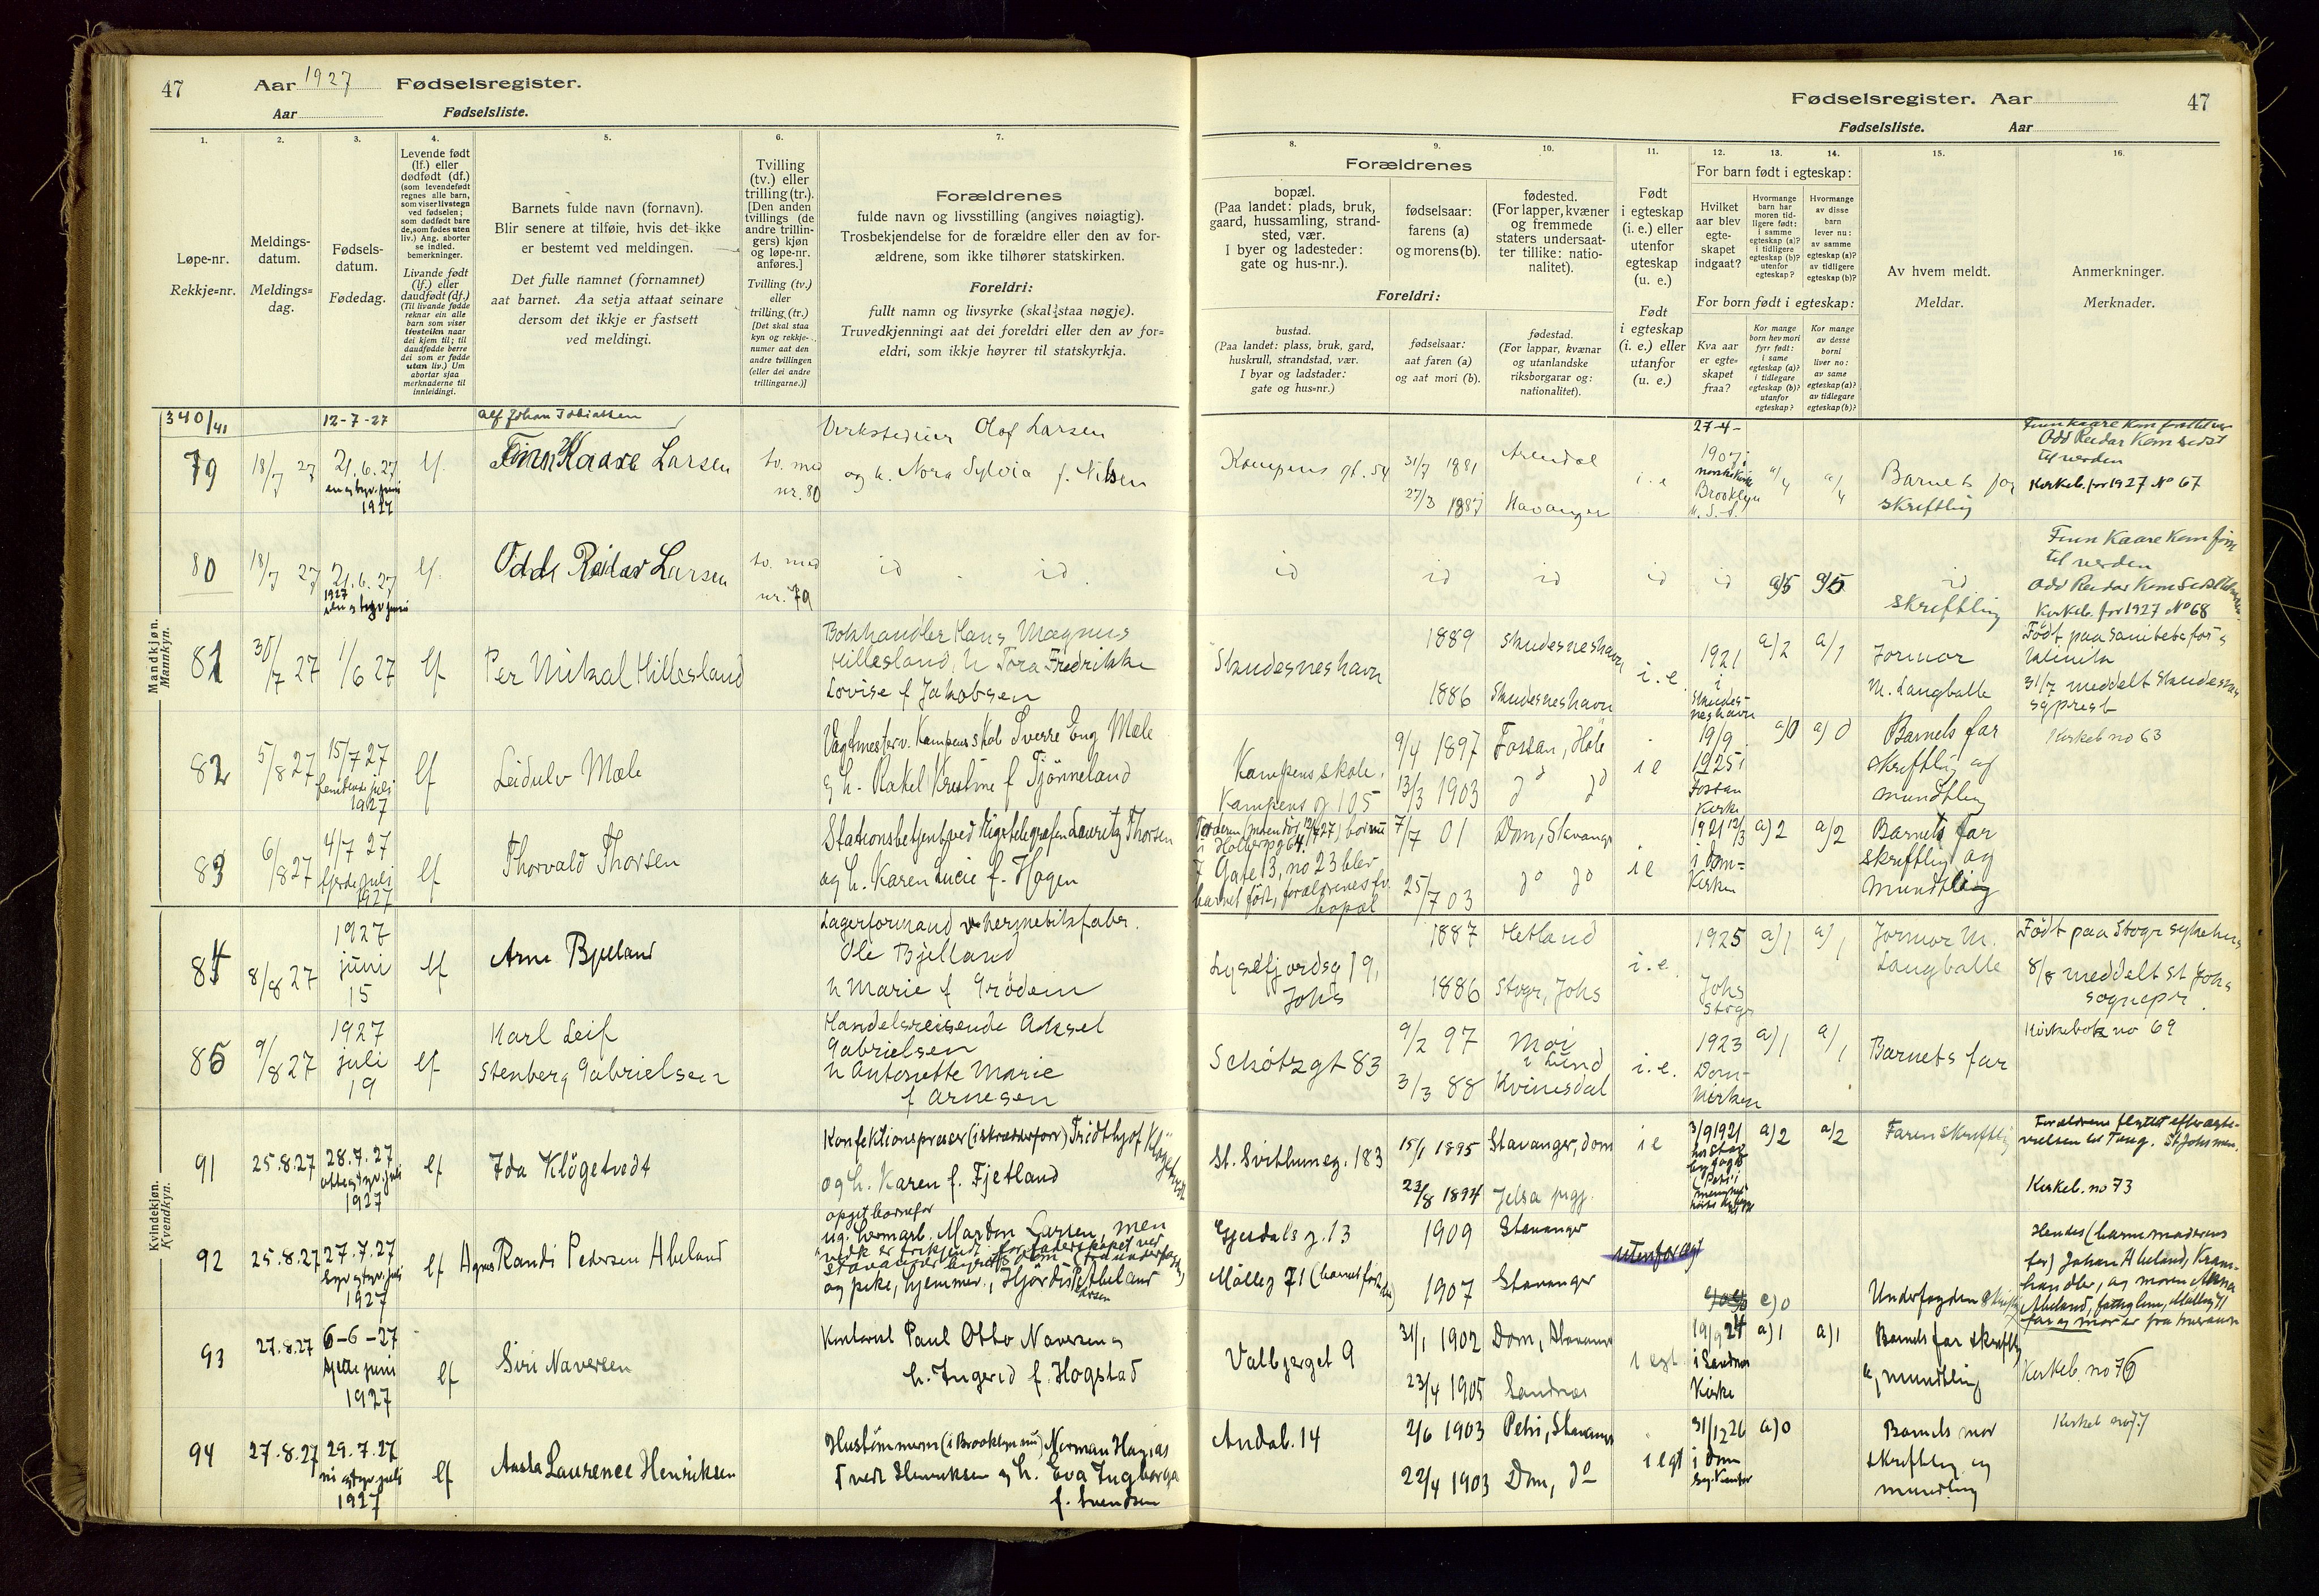 47
Aar 1927
Fødselsregister.
Aar
Fødselsliste.
Fødselsregister. Aar
47
Fødselsliste. Aar
1.
Løpe-nr.
Rekkje=nr.
2.
Meldings-
datum.
Meldings=
dag.
3.
Fødsels-
datum.
Fødedag.
4.
Levende født
(lf.) eller
dødfødt (df.)
(som levendefødt
regnes alle barn,
som viser livstegn
ved fødselen;
som dødfødt bare
de, som fødes uten
liv.) Ang. aborter
se indled.
bemerkninger.
Livande født
(lf.) eller
daudfødt (df.)
(Til livande fødde
reknar ein alle
barn som viser
livsteikn naar
dei kjem til; til
daudfødde berre
dei som er fødde
utan liv.) Um
abortar sjaa
merknaderne til
innleidingi.
5.
Barnets fulde navn (fornavn).
Blir senere at tilføie, hvis det ikke
er bestemt ved meldingen.
Det fulle namnet (fornamnet)
aat barnet. Aa setja attaat seinare
dersom det ikkje er fastsett
ved meldingi.
6.
Tvilling
(tv.) eller
trilling (tr.).
[Den anden
tvillings (de
andre trillin-
gers) kjøn
og løpe-nr.
anføres.]
Tvilling (tv.)
eller
trilling (tr.)
[Det skal staa
kyn og rekkje-
numer aat den
andre tvillingen
(eller dei andre
trillingarne.)]
7.
Forældrenes
fulde navn og livsstilling (angives nøiagtig).
Trosbekjendelse for de forældre eller den av for-
ældrene, som ikke tilhører statskirken.
Foreldri:
fullt namn og livsyrke (skal staa nøgje).
Truvedkjenningi aat dei foreldri eller den av for=
eldri, som ikkje høyrer til statskyrkja.
8.
Forældrenes
bopæl.
(Paa landet: plads, bruk,
gaard, hussamling, strand-
sted, vær.
I byer og ladesteder:
gate og hus-nr.).
Foreldri:
bustad.
(Paa landet: plass, bruk, gard,
huskrull, strandstad, vær.
I byar og ladstader:
gate og hus=nr.)
9.
fødselsaar:
farens (a)
og morens (b).
fødselsaar:
aat faren (a)
og aat mori (b).
10.
fødested.
(For lapper, kvæner
og fremmede
staters undersaat-
ter tillike: natio-
nalitet).
fødestad.
(For lappar, kvænar
og utanlandske
riksborgarar og:
nationalitet).
11.
Født
i egteskap
(i. e.) eller
utenfor
egteskap
(u. e.)
Født
i egteskap
(i. e.) eller
utanfor
(u. e.)
For barn født i egteskap:
12.
Hvilket
aar blev
egte-
skapet
indgaat?
13.
Hvormange
barn har
moren tid-
ligere født:
i samme
egteskap (a)?
i tidligere
egteskap (b)?
utenfor
egteskap?
14.
Hvormange
av disse
barn
lever nu:
av samme
egteskap (a)?
av tidligere
egteskap (b)?
For born født i egteskap:
Kva aar
er egte-
skapet
fraa?
Kor mange
born hev mori
fyrr født:
i same
egteskap (a)?
i tidlegare
egteskap (b)?
utanfor
egteskap?
Kor mange
av desse
borni
liver no:
av same
egteskap (a)?
av tidlegare
egteskap (b)?
15.
Av hvem meldt.
Meldar.
16.
Anmerkninger.
Merknader.
Mandkjøn.
Mannkyn.
340/41 12-7-27 Alf Johan Tobiassen
79 18/7 27 21.6.27 en og tyv. juni 1927 lf. Finn Kaare Larsen tv. med nr. 80
Verkstedeier Olof Larsen
og h. Nora Sylvia f. Nilsen
Kampens gt. 54 31/7 1881 Arendal
27/3 1887 Stavanger
i. e
27-4-
1907 i
norske kirke
Brooklyn
U. S. A.
a/4 a/4 Barnets far
skriftlig
Finn Kaare kom først til ver
Odd Reidar kom sidst
til verden
Kirkeb. for 1927 No 67
80 18/7 27 21.6.27 1927 en og tyv juni lf. Odd Reidar Larsen tv. med nr. 79
id. id.
id id id id id a/5 a/5 id
skriftlig
Finn Kaare kom først
til verden
Odd Reidar kom sidst til verden
Kirkeb. for 1927 No 68
81 30/7 27 1/6 27 lf Per Mikal Hillesland
Bokhandler Hans Magnus
Hillesland, h Tora Fredrikke
Lovise f Jakobsen
Skudesneshavn 1889 Skudesneshavn
1886 Skudesneshavn
i. e. 1921
i
Skudes-
neshavn
a/2 a/1 Jormor
M. Langballe
Født paa Sanitetsfor s
klinikk
31/7 meddelt Skudesnes
sgprest
82 5/8 27 15/7 27 femtende juli 1927 lf Leidulv Mæle
Vagtmester v. Kampens skole Sverre Eng Mæle
og h. Rakel Kristine f Tjønneland
Kampens skole,
Kampens g 105
9/4 1897 Fossan, Høle
13/3 1903 do do
i e 19/9
1925 i
Fossan
Kirke
a)0 a)0 Barnets far
skriftlig og
mundtlig
Kirkeb no 63
83 6/8 27 4/7 27 fjerde juli 1927 lf Thorvald Thorsen
Stationsbetjent ved Rigstelegrafen Lauritz Thorsen
og h. Karen Lucie f. Hagen
Forderen (moren død 12/7 27) bor nu
i Holbergsg 64.
I Gate 13, no 23 blev
barnet født, forældrenes fv.
bopæl
7/7 01 Dom, Stavanger
25/7 03 do do
i e 1921 12/3
i Dom-
Kirken
a)2 a/2 Barnets far
skriftlig og
mundtlig
84 8/8 27 1927 juni 15 lf Arne Bjelland
Lagerformand v hermetikfabr.
Ole Bjelland
h Marie f Grødem
Lysefjordsg 19,
Johs
1887 Hetland
1886 Stvgr, Johs
i. e. 1925
Johs
Stvgr
a)1 a)1 Jormor M.
Langballe
Født paa Stvgr sykehus
8/8 meddelt St Johs
sognepr.
85 9/8 27 1927 juli 19 lf Karl Leif
Stenberg Gabrielsen
Handelsreisende Aksel
Gabrielsen
h Antonette Marie
f Arnesen
Schøtzgt 83
9/2 97 Moi
i Lund
3/3 88 Kvinesdal
i. e. 1923
Dom-
kirken
a)1 a/1 Barnets far
Kirkebok no 69
Kvindekjøn.
Kvendkyn.
91 25.8.27 28.7.27 otte og tyv. juli 1927 lf Ida Kløgetvedt
Konfektionspresser (i skrædderforr) Fridthjof Kløgetvedt
og h. Karen f. Fjetland
St. Svithunsg. 183
15/1 1895 Stavanger, dom
23/8 1894 Jelsa prgj.
i e 3/9 1921
a)2 a/2 Faren skriftlig
Kirkeb. no 73
92 25.8.27 27.7.27 syv og tyv. juli 1927 lf Agnes Randi Pedersen Abeland
opgit barnefar
ug. hermarb. Marton Larsen, men
og pike, hjemmev., Hjørdis Pedersen Abeland
Gjesdals g. 13 1909 Stavanger
Mølleg 71 (barnet født der) 1907 Stavanger
utenfor egt
c)0 Underfogden skriftlig
Hendes (barnemoderens
far) Johan Abeland, Kram-
handler, og moren Anna
Abeland,
93 27.8.27 6-6-27 sjette juni 1927 lf Siri Naversen
Kontorist Paul Otto Naversen og
h. Ingerid f. Hogstad
Valbjerget 9
31/1 1902 Dom, Stavanger
23/4 1905 Sandnes
i egt 19/9 24
i Sandnes
Kirke
a)1 a)1 Barnets far skriftlig
og mundtlig
Kirkeb. no 76
94 27.8.27 29.7.27 ni og tyv. juli 1927 lf Aasta Laurence Henriksen
Hustømmerm (i Brooklyn nu) Norman Hagias
Tvedt Henriksen og h. Eva Ingborga
f. Svendsen
Andab. 14
2/6 1903 Petri, Stavanger
22/4 1903 Dom, do
i egt 31/12 26
i Dom
sg. Kontor
a)0 Barnets mor
skriftlig og
mundtlig
Kirkeb no 77